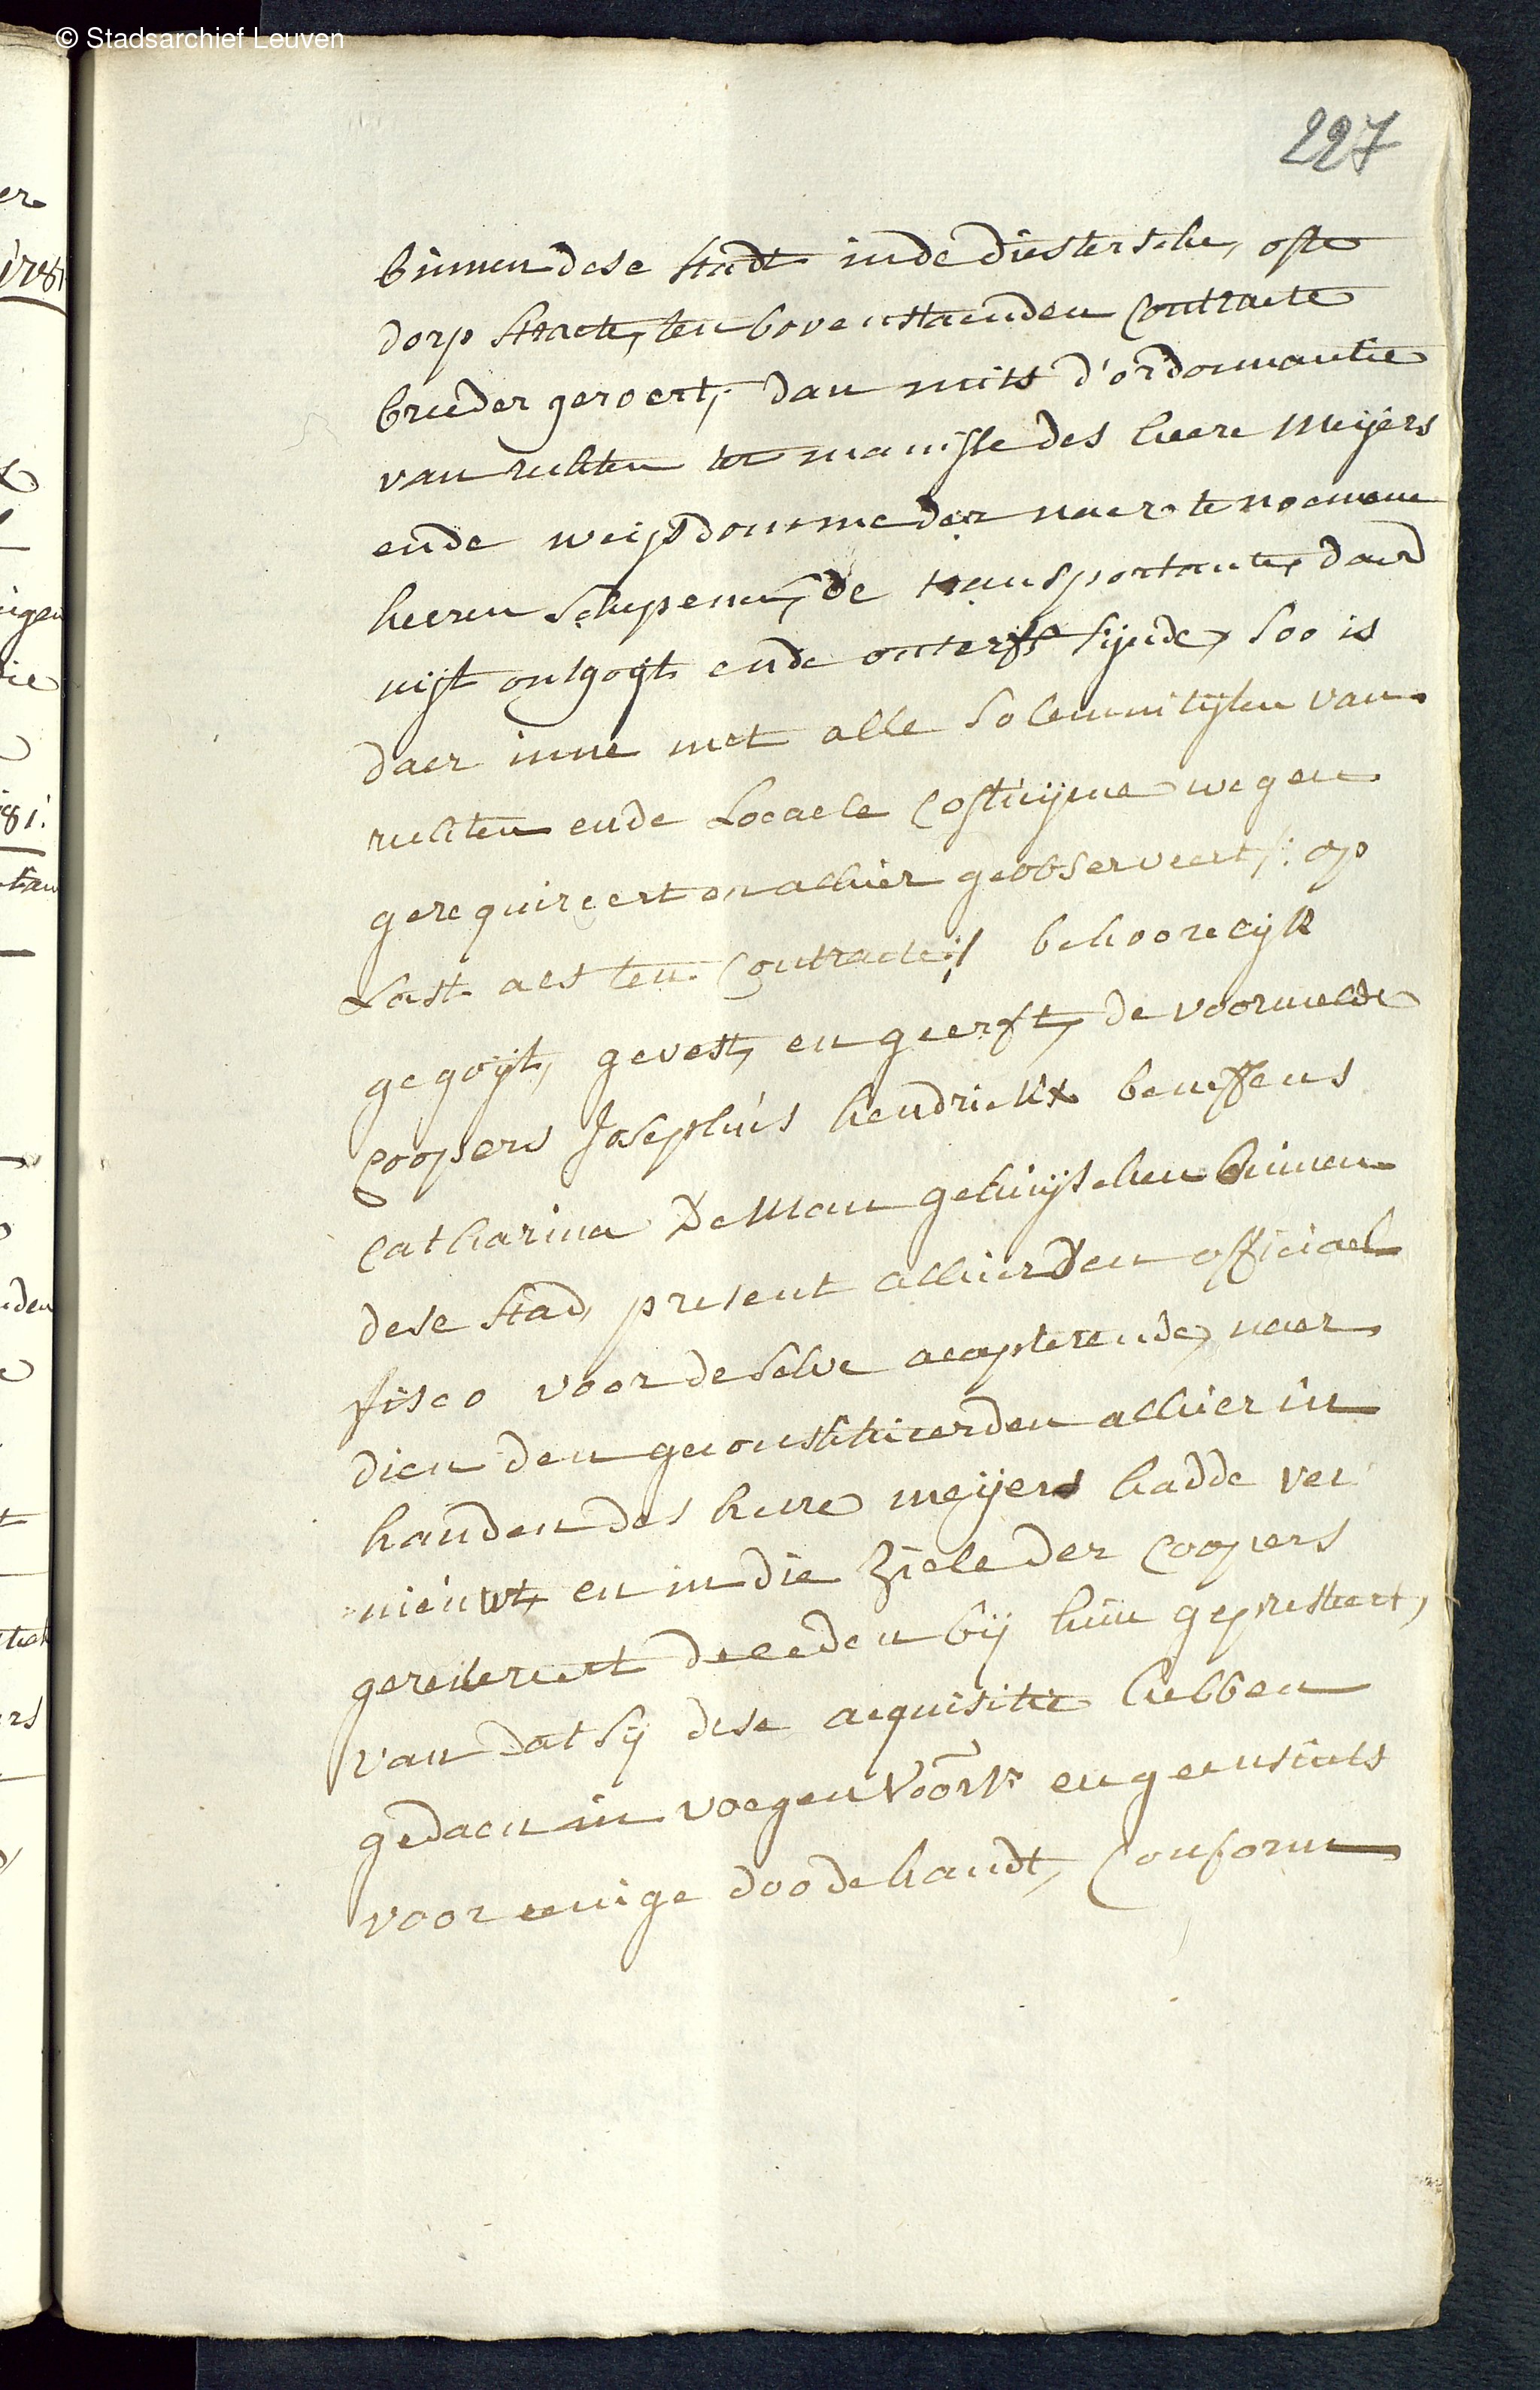 © Stadsarchief Leuven
227
binnen dese stadt in de diestersche, ofte
dorp straete, ten bovenstaenden Contracte
breeder geroert, dan mits d'ordonnantie
van rechten ter manisse des heere Meijers
ende weijsdomme der naer te noemene
heeren schepenen, de transportante daer
uijt ontgoijt ende onterft sijnde, soo is
daer inne met alle solemnitijten van
rechten ende Locaele Costuijme wegen
gerequireert en alhier geobserveert /: op
Last als ten Contracte :/ behoorelijk
gegoijt, gevest, en geerft, de voormelde
coopers Josephus hendrickx beneffens
Catharina De Man gehuijschen binnen
dese stad, present alhier Den officiael
fisco voor de selve accepterende, naer
dien den geconstitueerden alhier in
handen des heere meijers hadde ver
nieuwt, en in die Ziele der coopers
gereitereert deeeden bij hun gepresteert,
van dat sij dese acquisitie hebben
gedaen in voegen voors. en geensints
voor eenige doode handt, Conform
er
1781
ingen
die
781:
nden
ers